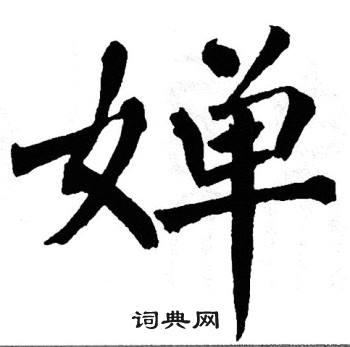 婵
词典网